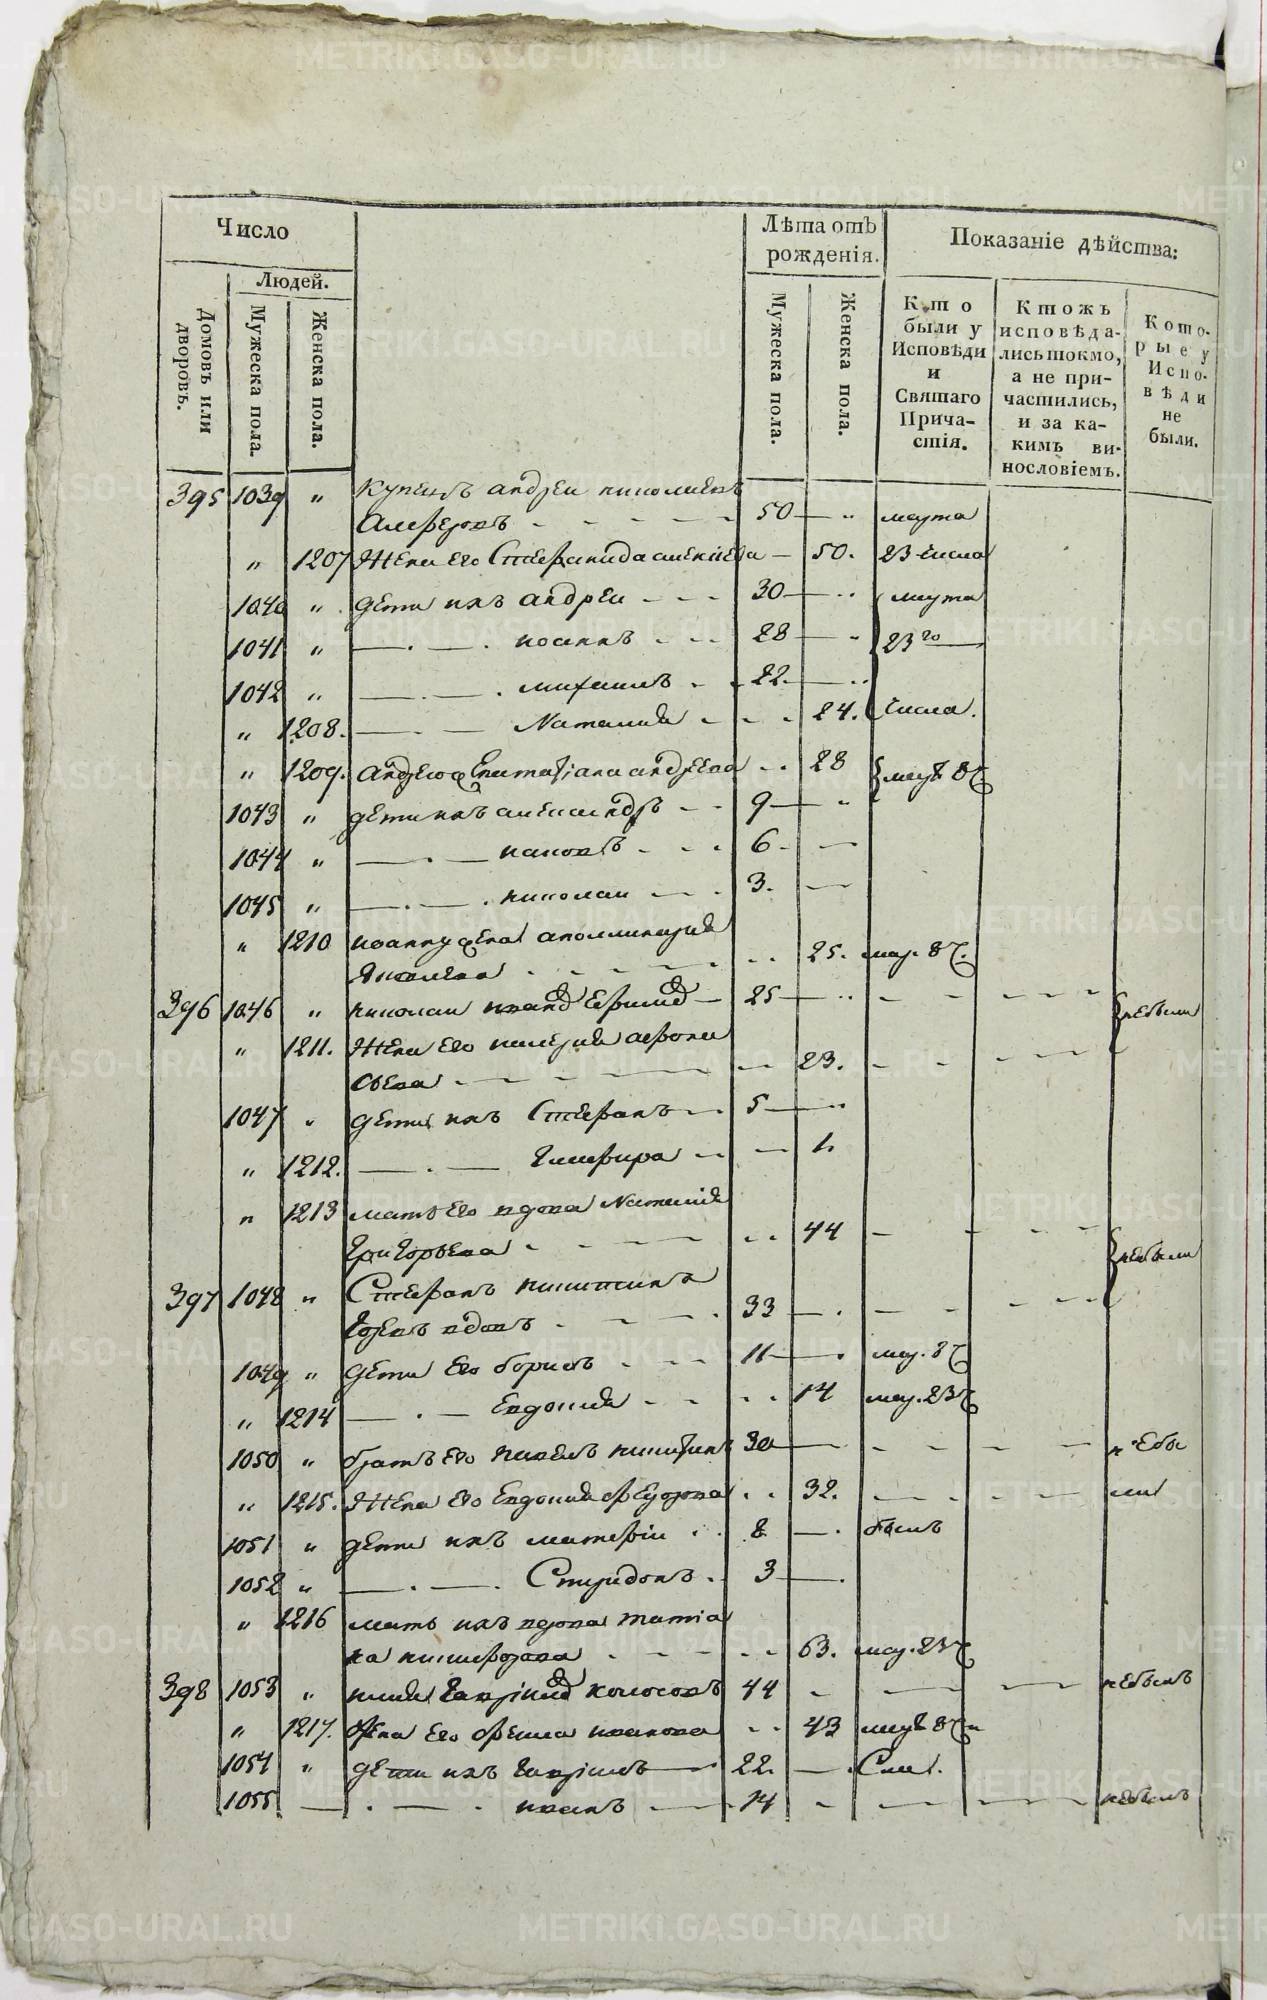 Число
Лѣта отъ рожденія.
Показаніе дѣйства:
Людей.
Домовъ или дворовъ.
Мужеска пола.
Женска пола.
Мужеска пола.
Женска пола.
Кто были у Исповѣди и Святаго Причастія.
Ктожъ исповѣдались токмо, а не причастились, и за какимъ винословіемъ.
Которые у Исповѣди не были.
395 1039 " Купецъ андреи николаевъ
Алферовъ 50 — " марта
" 1207 Жена его Стефанида алекпева — 50. 23 числа
1040 " дети ихъ андреи 30 — " марта
1041 " — . — . иоаннъ 28 — " 23 го
1042 " — . — . михаилъ 22. — "
" 1208. — . — Наталия 24. числа.
" 1209. андреюа андреева 28 8 ч
1043 " дети ихъ александръ 9 — "
1044 " — . — иаковъ 6. —
1045 " — . — . николаи 3. —
" 1210 иоанну жена аполлинария
Яковлева 25. мар. 8 ч.
396 1046 " николаи иванов 25 — " небыли
" 1211. Жена его валерия афона
сьева 23.
1047 " дети ихъ Стефанъ 5 — "
" 1212. — . — Глафира — 1.
" 1213 мать его вдова Наталия
Григорьева 44 небыли
397 1048 " Стефанъ никитинъ
вдовъ 33 — .
1049 " дети его борисъ 11 — . мар. 8 ч
" 1214 — . — Евдокия 14 мар. 23 ч
1050 " братъ его павелъ никитинъ 30 — небы
" 1215. Жена его Евдокия федорова 32. ли
1051 " дети ихъ матвеи 8 — . былъ
1052 " — . — . Спиридонъ . 3 — .
" 1216 мать ихъ вдова татиа
на никифорова 63. мар. 23 ч
398 1053 " илия Гаврилов колосовъ 44 небылъ
" 1217. Жена его фекла иванова 43 8 ч и
1054 " дети ихъ Гавриилъ 22. — . Сын.
1055 — . — . иванъ 14 небылъ
METRIKI.GASO-URAL.RU